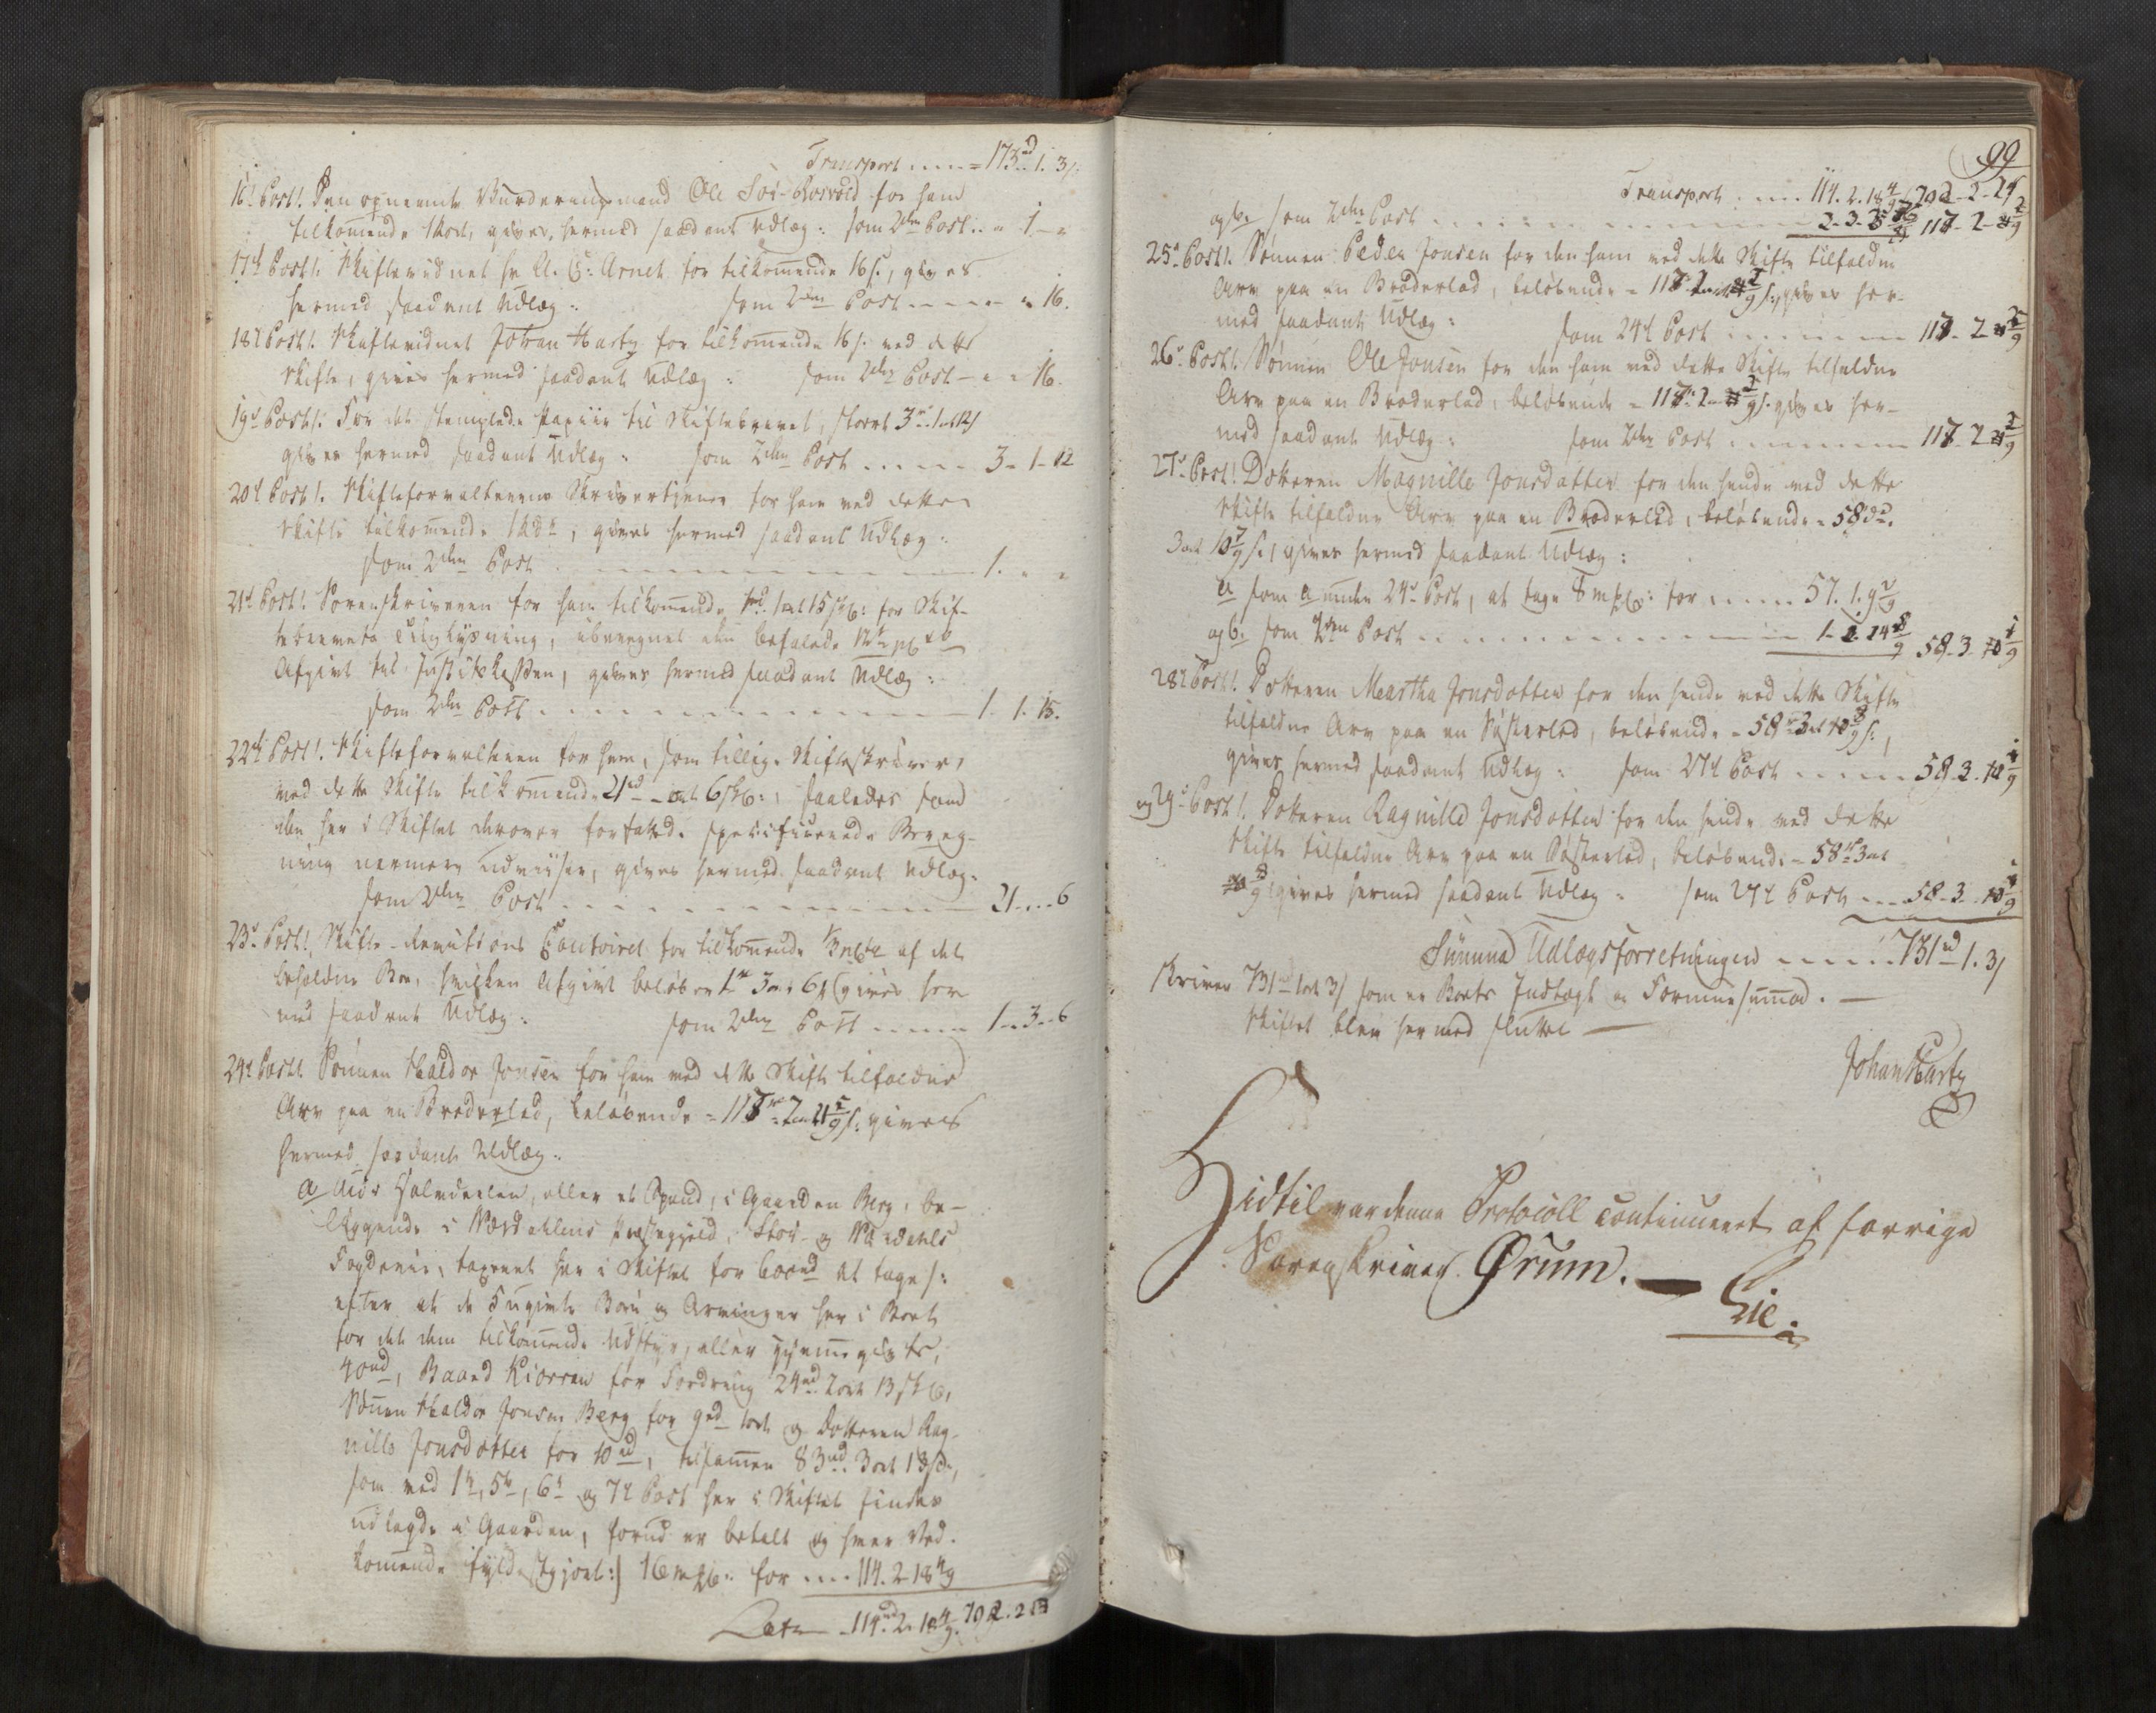 Transport - - - - = 173rd 1. 3 s:
16. Post! Den opnævnte Vurderingsmand Ole Soi-Rosvold for ham
tilkommende 1 Ort, gives hermed saadant Udlæg: som 2den Post.. " 1 - "
17d Post! Skiftevidnet hr. A. C: Arnet for tilkommende 16 s., gives
hermed saadant Udlæg: som 2den Post - - - - " 16.
18d Post! Skiftevidnet Johan Harby for tilkommende 16 s. ved dette
skifte, gives hermed saadant Udlæg: som 2den Post - " " 16.
19d Post! For det stemplede Papiir til Skiftebrevet, stort 3rd 1ort 12 s
gives hermed saadant Udlæg: som 2den Post . . . . . 3 - 1 - 12
20d Post! Skifteforvalterens Skrivertiener for ham ved dette
skifte tilkommende 1 Rdr, gives hermed saadant Udlæg:
som 2den Post - - - - - - 1. " "
21d Post! Sorenskriveren for ham tilkommende 1rd 1ort 15 s: for Skif-
tebrevets Tinglysning, iberegnet den befalede
Afgivt til Justitskassen, gives hermed saadant Udlæg:
som 2den Post - - - - - 1. 1. 15.
22d Post! Skifteforvalteren for ham, som tillige Skifteskriver,
ved dette Skifte tilkommende 21rd - ort 6 s:, saaledes som
den her i Skiftet derover forfattede specificerede Bereg-
ning nermere udviiser, gives hermed saadant Udlæg:
som 2den Post - - - - - 21 - " - 6
23d Post! Skifte-Revisions Contoiret for tilkommende af det
beholdne Boe, hvilken Afgivt beløber 1rd 3ort 6 s gives her
med saadant Udlæg: som 2den Post - - - - - 1 - 3 - 6
24d Post! Sønnen Haldor Jonsen for ham ved dette Skifte tilfaldne
Arv paa en Broderlod, beløbende = gives
hermed saadant Udlæg:
a Udi Halvdeelen, eller et Spand, i Gaarden Berg, be-
liggende i Værdahlens Præstegjeld, Stør- og Værdahls
Fogderie, taxeret her i Skiftet for 600rd at tage s:
efter at de Ugivte Børn og Arvinger her i Boet
for det dem tilkommende Udstyr, eller Hjemmegivte,
40rd, Baard Kiørren for Fordring 24rd 2ort 13 s,
Sønnen Haldor Jonsen Berg for 9rd 1ort og Datteren Rag-
nille Jonsdatter for 10rd, tilsammen 83rd 3ort 13 s,
som ved 1te, 5te, 6te og 7d Post her i Skiftet findes
udlagde i Gaarden, forud er betalt og hver Ved-
kommende fyldestgjort:/ 16 for - - - - 114. 2. 18 4/9
Lat. - 114rd 2. 18 4/9. 702.
99
Transport - - - - 114. 2. 18 4/9 702 - 2 -
og b. som 2den Post - - - - - -
25d Post! Sønnen Peder Jonsen for den ham ved dette Skifte tilfaldne
Arv paa en Broderlod, beløbende = gives her-
med saadant Udlæg: som 24d Post - - - - - -
26d Post! Sønnen Ole Jonsen for den ham ved dette Skifte tilfaldne
Arv paa en Broderlod, beløbende = gives her-
med saadant Udlæg: som 2den Post - - - - - -
27d Post! Datteren Magnille Jonsdatter for den hende ved dette
Skifte tilfaldne Arv paa en Broderlod, beløbende = 58rd.
3ort gives hermed saadant Udlæg:
a som a under 24d Post, at tage 8 for - - - - 57. 1. 9 2/9
og b. som 2den Post - - - - - - 58 - 3 -
28d Post! Datteren Martha Jonsdatter for den hende ved dette Skifte
tilfaldne Arv paa en Søsterlod, beløbende = 58rd 3ort
gives hermed saadant Udlæg: som 27d Post - - - - 58 - 3 -
og 29d Post! Datteren Ragnille Jonsdatter for den hende ved dette
Skifte tilfaldne Arv paa en Søsterlod, beløbende = 58rd 3ort
gives hermed saadant Udlæg: som 27d Post - - - 58 - 3 -
Summa Udlægsforretningen - - - - - 731rd 1. 3 s
skriver 731rd 1ort 3 s som er Boets Indtægt og Formuesumma. —
Skiftet blev hermed sluttet —
Johan Harby
Hidtil var denne Protocoll continueret af forrige
Sorenskriver Ørum. —
Lie.